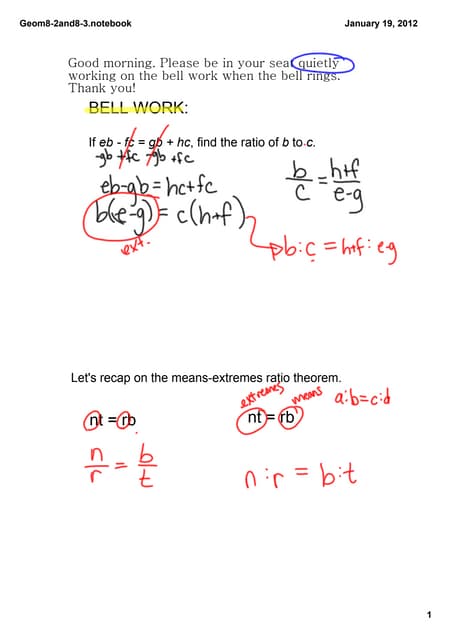 Geom8-2and8-3.notebook
January 19, 2012
Good morning. Please be in your seat quietly
working on the bell work when the bell rings.
Thank you!
BELL WORK:
If eb - fc = gb + hc, find the ratio of b to c.
-gb +fc -gb +fc
eb-gb=hc+fc
b(e-g)=c(h+f)
ext.
b/c = h+f/e-g
b:c = h+f:e-g
Let's recap on the means-extremes ratio theorem.
extremes means a:b=c:d
nt = rb
nt = rb
n/r = b/t
n:r = b:t
1